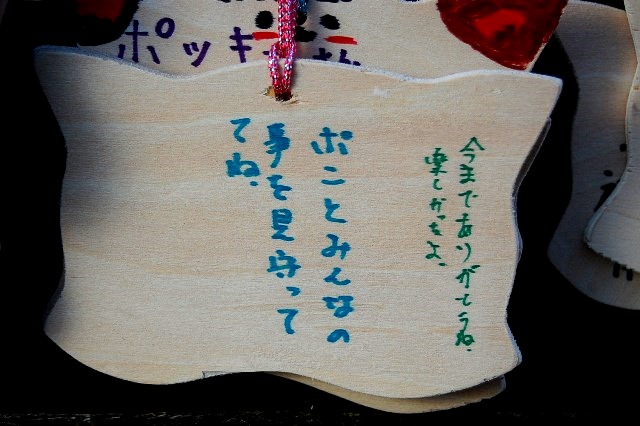 ポッキーさん
今まであリがとうね。
楽しかったよ。
ポコとみんなの
事を見守って
てね。